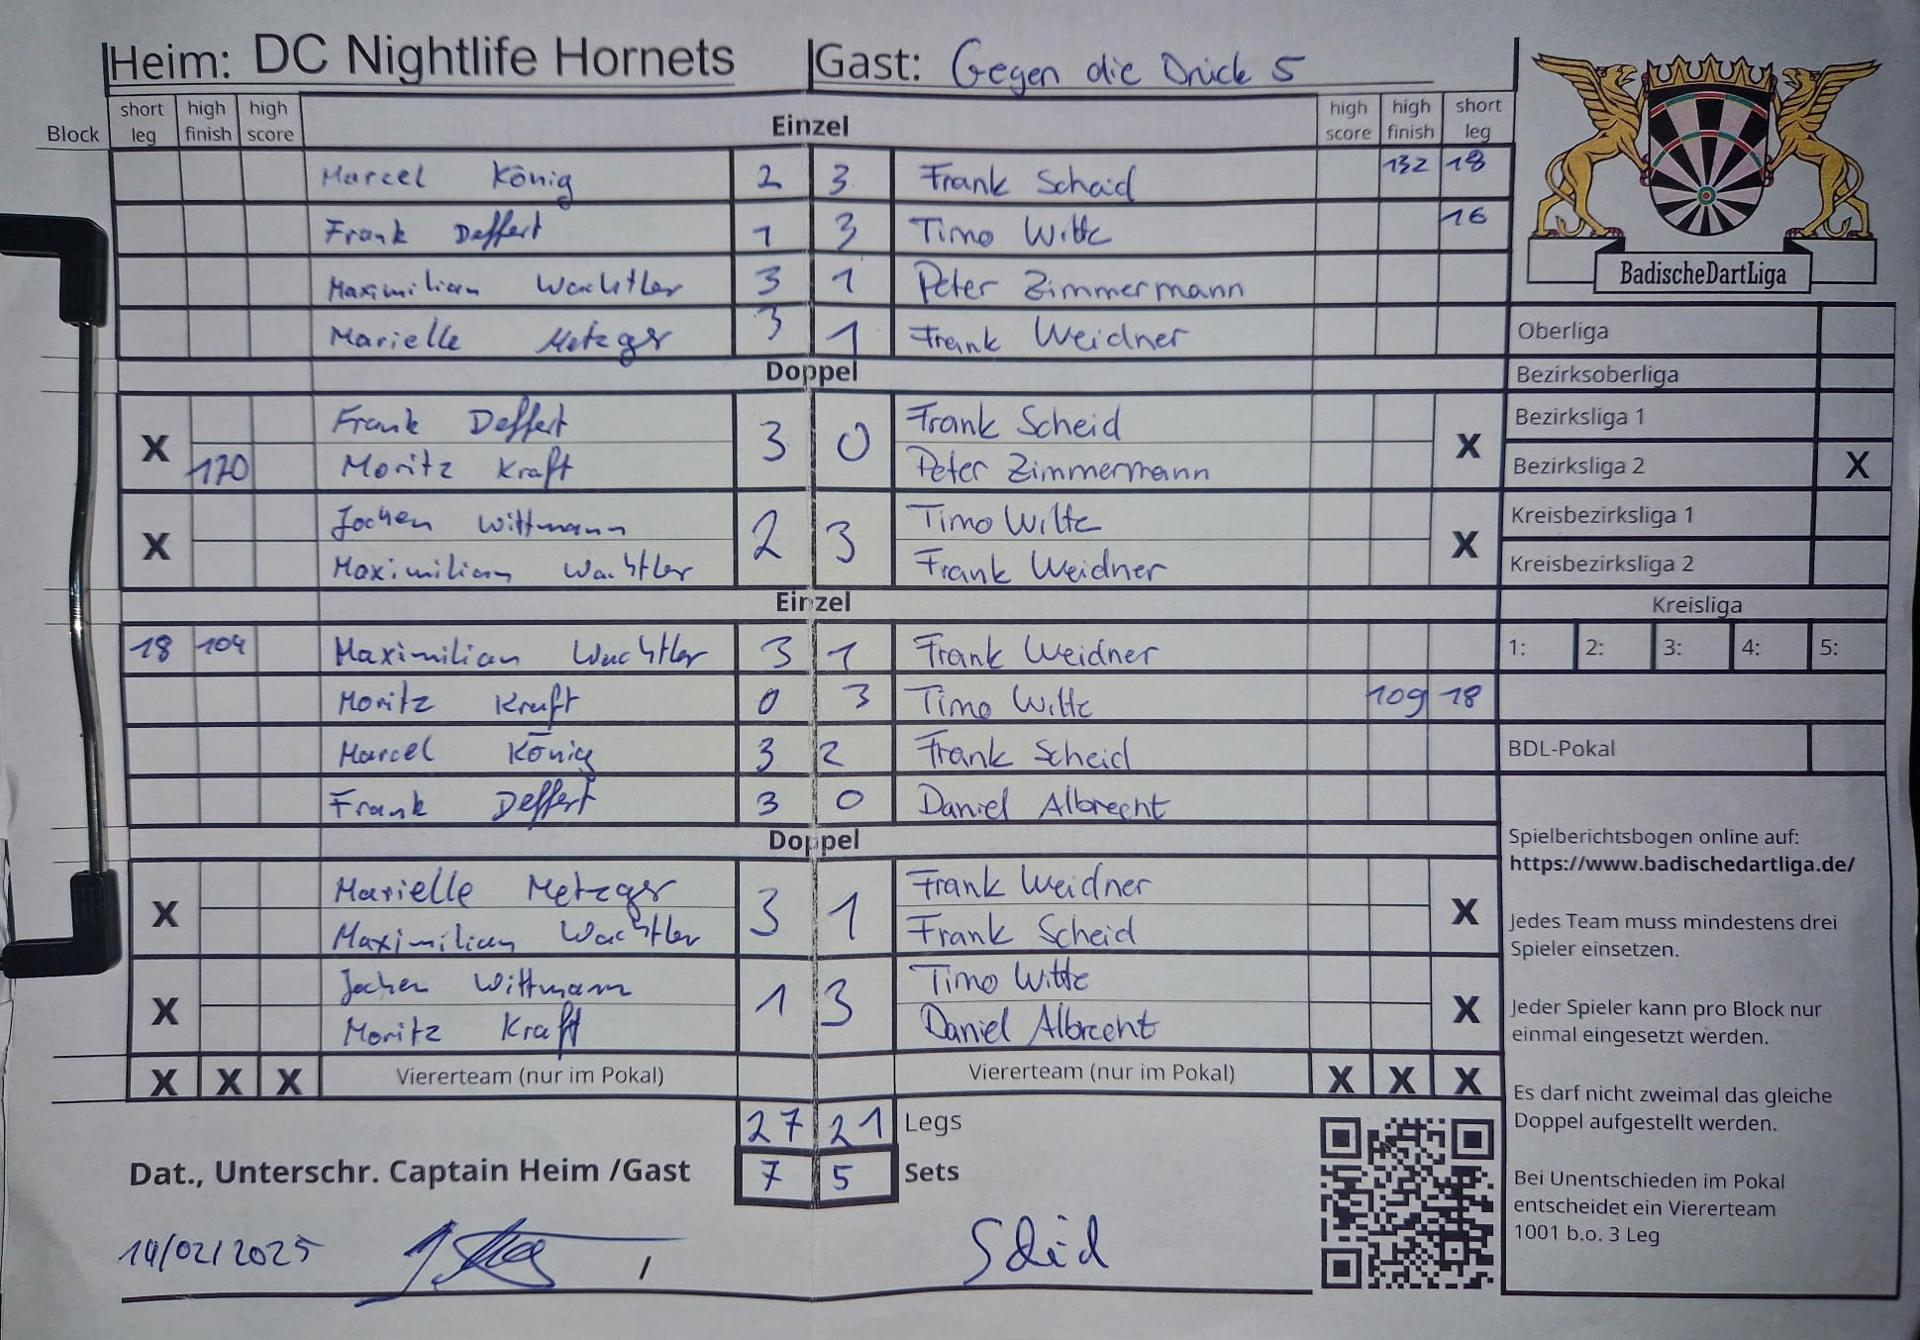 Heim: DC Nightlife Hornets Gast: Gegen die Drück 5
Block short leg high finish high score Einzel high score high finish short leg
Marcel König 2 3 Frank Scheid 132 18
Frank Deffert 1 3 Timo Witte 16
Maximilian Wachtler 3 1 Peter Zimmermann
Marielle Metzger 3 1 Frank Weidner
Doppel
Frank Deffert Frank Scheid
X 3 0 X
170 Moritz Kraft Peter Zimmermann
Jochen Wittmann Timo Witte
X 2 3 X
Maximilian Wachtler Frank Weidner
Einzel
18 104 Maximilian Wachtler 3 1 Frank Weidner
Moritz Kraft 0 3 Timo Witte 109 18
Marcel König 3 2 Frank Scheid
Frank Deffert 3 0 Daniel Albrecht
Doppel
Marielle Metzger Frank Weidner
X 3 1 X
Maximilian Wachtler Frank Scheid
Jochen Wittmann Timo Witte
X 1 3 X
Moritz Kraft Daniel Albrecht
X X X Viererteam (nur im Pokal) Viererteam (nur im Pokal) X X X
27 21 Legs
Dat., Unterschr. Captain Heim /Gast 7 5 Sets
14/02/2025 Scheid
BadischeDartLiga
Oberliga
Bezirksoberliga
Bezirksliga 1
Bezirksliga 2 X
Kreisbezirksliga 1
Kreisbezirksliga 2
Kreisliga
1: 2: 3: 4: 5:
BDL-Pokal
Spielberichtsbogen online auf:
https://www.badischedartliga.de/
Jedes Team muss mindestens drei
Spieler einsetzen.
Jeder Spieler kann pro Block nur
einmal eingesetzt werden.
Es darf nicht zweimal das gleiche
Doppel aufgestellt werden.
Bei Unentschieden im Pokal
entscheidet ein Viererteam
1001 b.o. 3 Leg